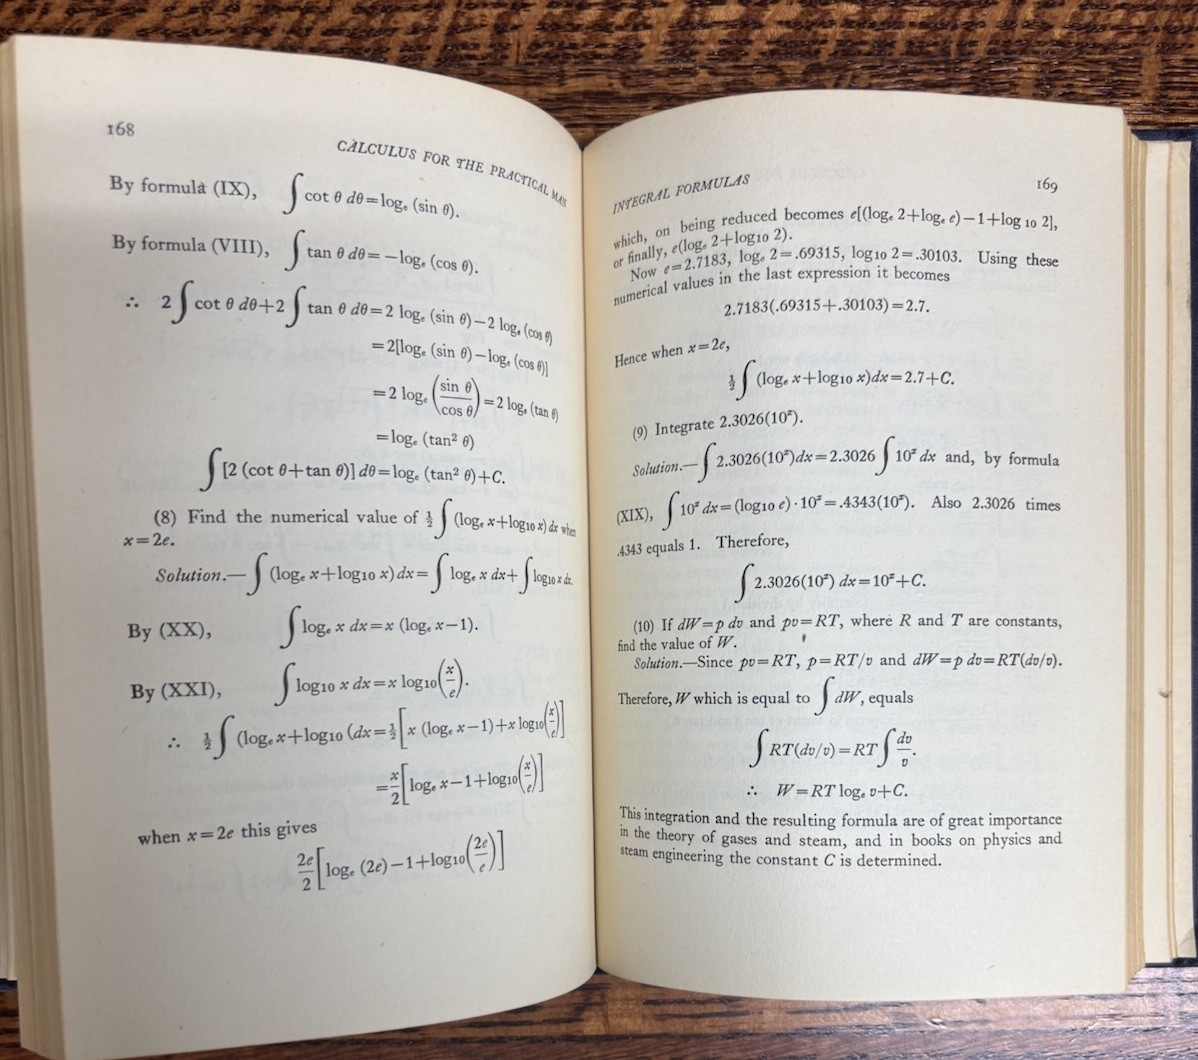 168
CALCULUS FOR THE PRACTICAL MAN
By formula (IX), ∫ cot θ dθ=logₑ (sin θ).
By formula (VIII), ∫ tan θ dθ=−logₑ (cos θ).
∴ 2∫ cot θ dθ+2∫ tan θ dθ=2 logₑ (sin θ)−2 logₑ (cos θ)
=2[logₑ (sin θ)−logₑ (cos θ)]
=2 logₑ (sin θ/cos θ)=2 logₑ (tan θ)
=logₑ (tan² θ)
∫[2 (cot θ+tan θ)] dθ=logₑ (tan² θ)+C.
(8) Find the numerical value of ½ ∫ (logₑ x+log₁₀ x) dx when
x=2e.
Solution.—∫ (logₑ x+log₁₀ x) dx= ∫ logₑ x dx+ ∫ log₁₀ x dx.
By (XX), ∫ logₑ x dx=x (logₑ x−1).
By (XXI), ∫ log₁₀ x dx=x log₁₀(x/e).
∴ ½ ∫ (logₑ x+log₁₀ (dx=½[x (logₑ x−1)+x log₁₀(x/e)]
=x/2[logₑ x−1+log₁₀(x/e)]
when x=2e this gives
2e/2[logₑ (2e)−1+log₁₀(2e/e)]
INTEGRAL FORMULAS
169
which, on being reduced becomes e[(logₑ 2+logₑ e)−1+log 10 2],
or finally, e(logₑ 2+log₁₀ 2).
Now e=2.7183, logₑ 2=.69315, log₁₀ 2=.30103. Using these
numerical values in the last expression it becomes
2.7183(.69315+.30103)=2.7.
Hence when x=2e,
½∫ (logₑ x+log₁₀ x)dx=2.7+C.
(9) Integrate 2.3026(10ˣ).
Solution.—∫ 2.3026(10ˣ)dx=2.3026 ∫ 10ˣ dx and, by formula
(XIX), ∫ 10ˣ dx=(log₁₀ e)·10ˣ=.4343(10ˣ). Also 2.3026 times
.4343 equals 1. Therefore,
∫ 2.3026(10ˣ) dx=10ˣ+C.
(10) If dW=p dv and pv=RT, where R and T are constants,
find the value of W.
Solution.—Since pv=RT, p=RT/v and dW=p dv=RT(dv/v).
Therefore, W which is equal to ∫ dW, equals
∫ RT(dv/v)=RT ∫ dv/v.
∴ W=RT logₑ v+C.
This integration and the resulting formula are of great importance
in the theory of gases and steam, and in books on physics and
steam engineering the constant C is determined.